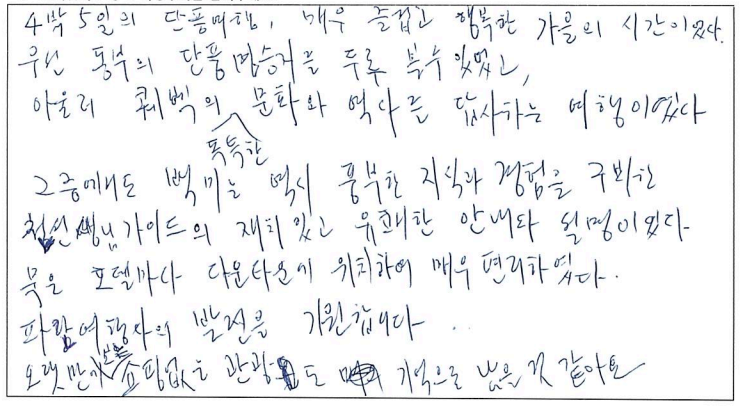 4박5일의 단풍여행, 매우 즐겁고 행복한 가을의 시간이었다.
우선 동부의 단풍명승지를 두루 볼수 있었고,
아울러 퀘벡의 독특한 문화와 역사를 답사하는 여행이었다
그중에도 백미는 역시 풍부한 지식과 경험을 구비한
가이드의 재치있고 유쾌한 안내와 설명이었다
묵은 호텔마다 다운타운에 위치하여 매우 편리하였다.
파람여행사의 발전을 기원합니다
오랫만에 쇼핑없는 관광 도 기억으로 남을 것 같아요